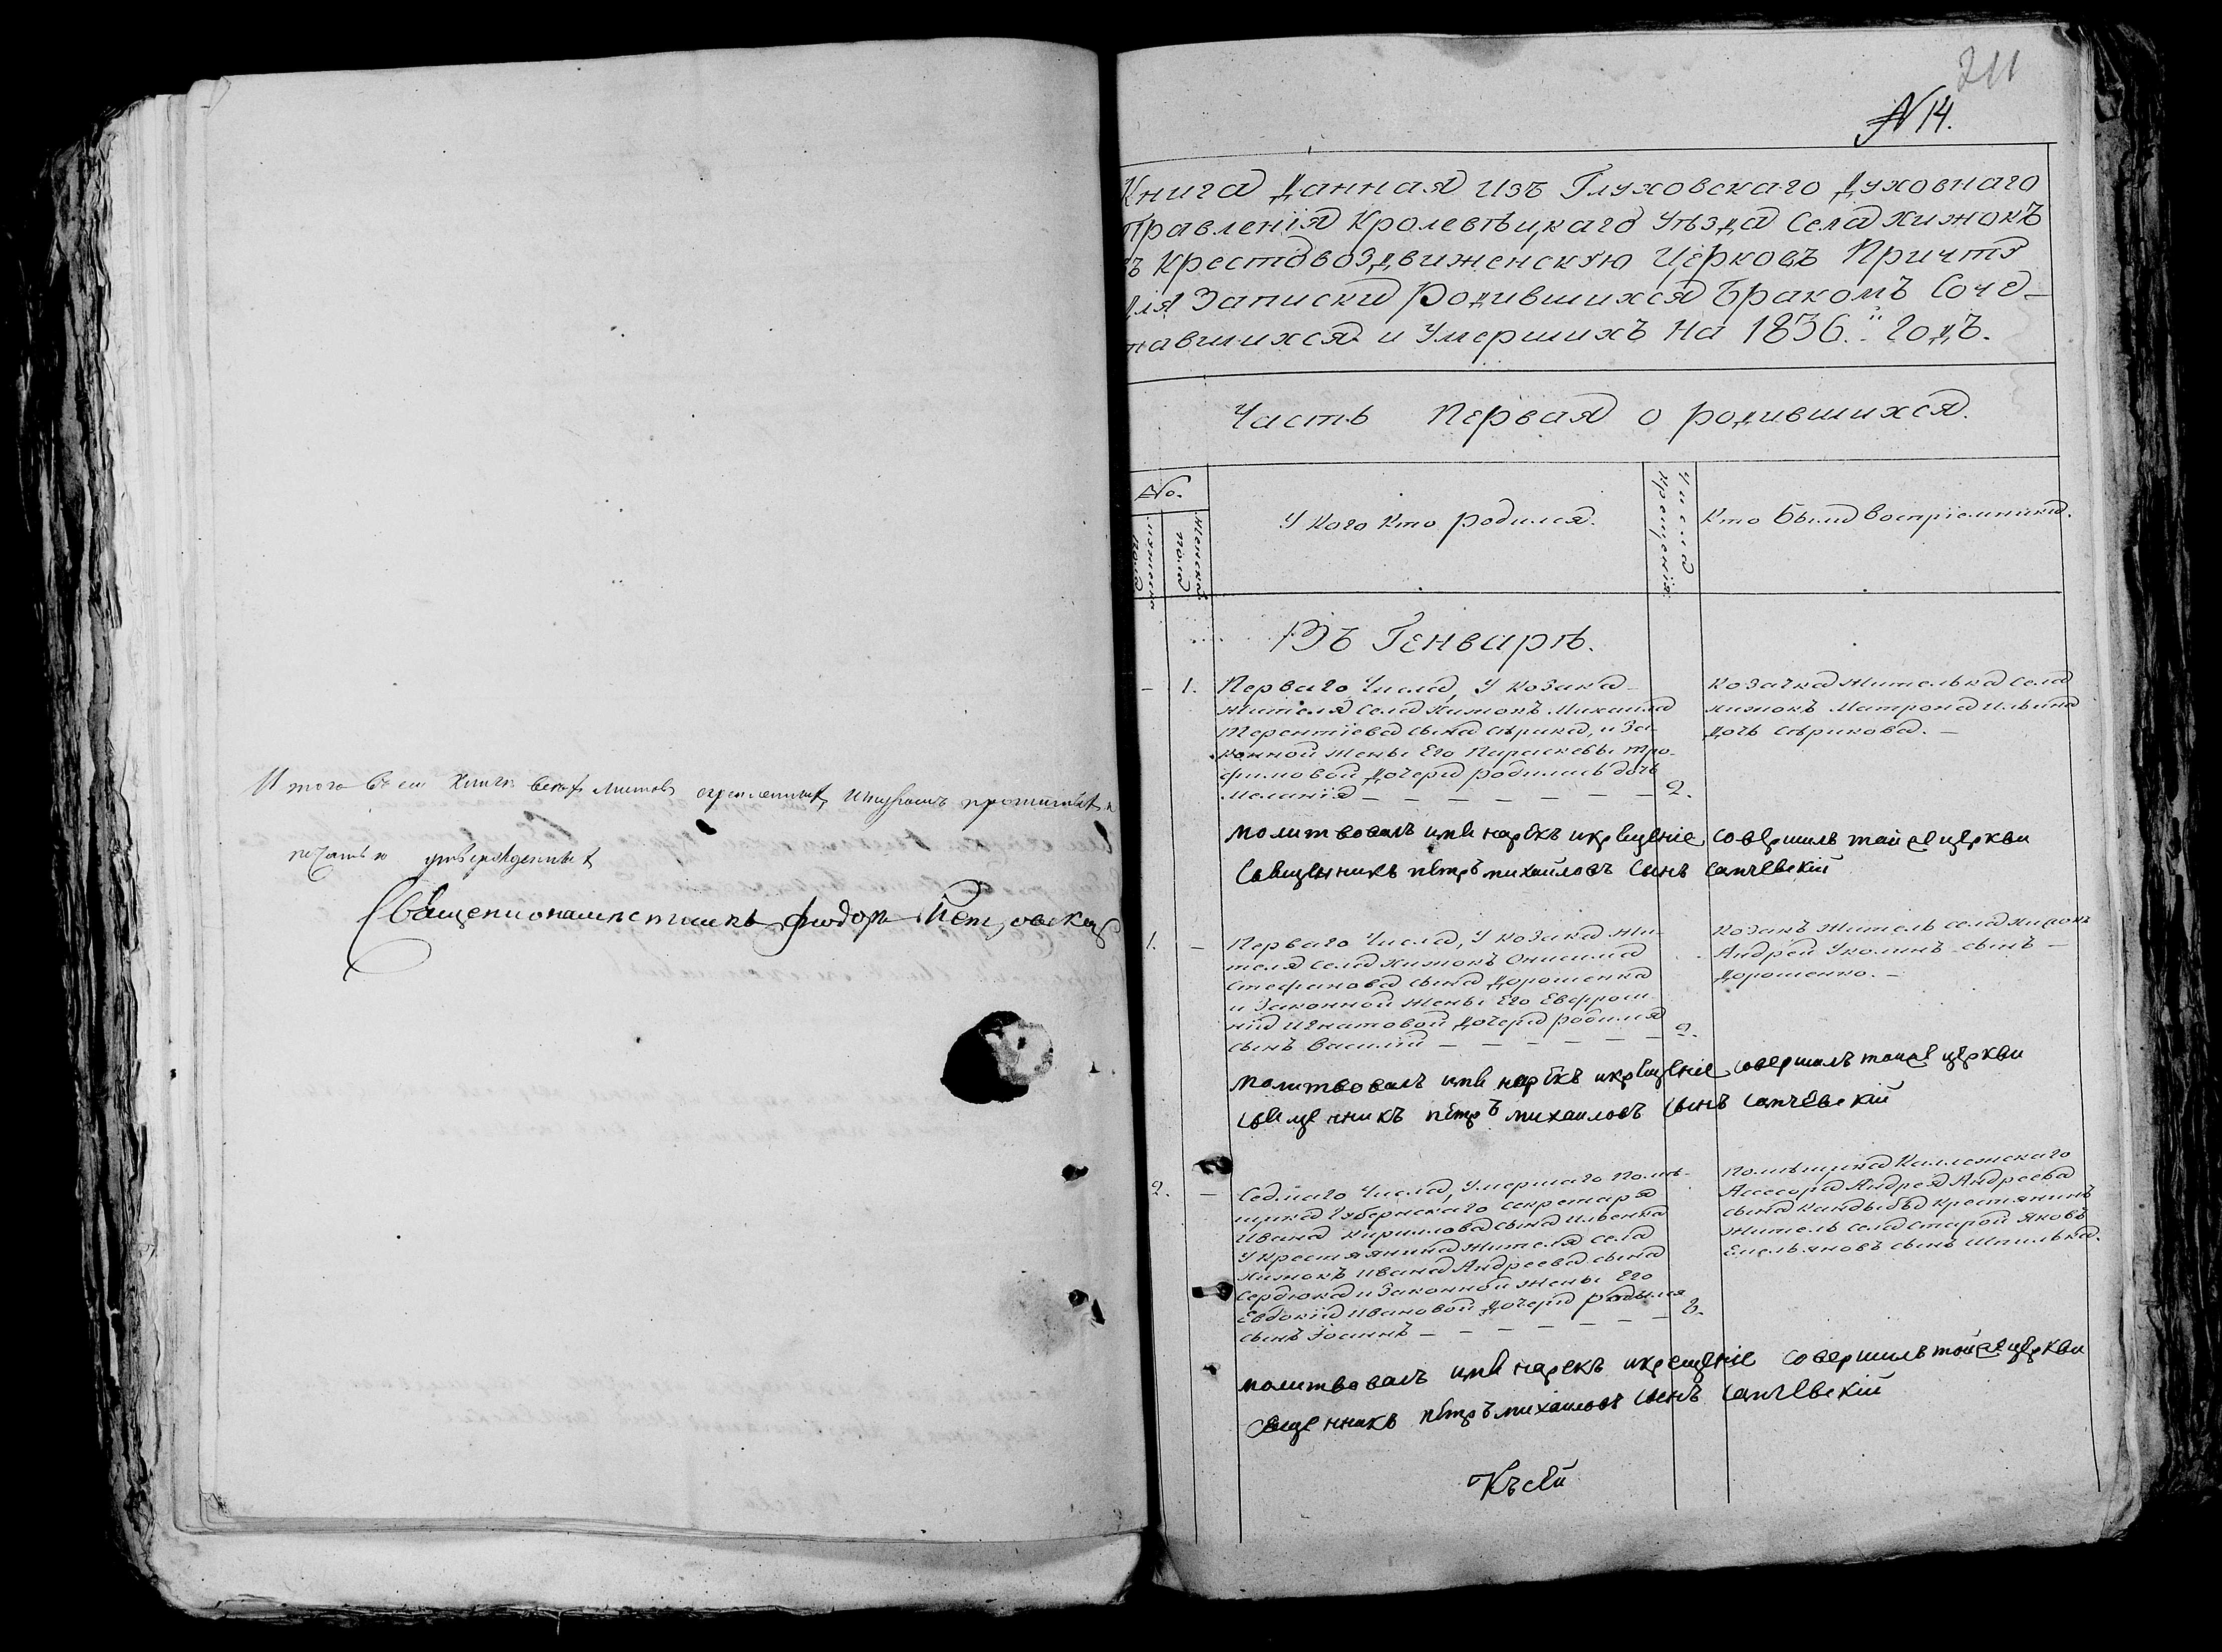 Итого въ сей книгѣ листовъ скрепленныхъ, и
печатью утвержденныхъ
Священнонамѣстникъ Феодоръ
211
N 14.
Книга Данная изъ Глуховскаго Духовнаго
Правленія Кролевѣцкаго Уѣзда Села Хижокъ
въ Крестовоздвиженскую Церковъ Причту
для Записки Родившихся Бракомъ Соче-
тавшихся и Умершихъ На 1836.й Годъ.
Часть Первая о родившихся.
No.
мужеска пола
Женска пола
У кого кто родился.
Числа крещенія
Кто были воспріемники.
Въ Генварѣ.
– 1. Перваго Числа, У козака
Жителя села Хижокъ Михаила
Терентіева сына Сѣрика, и За-
конной жены Его Параскевы Тро-
фимовой Дочери родилась дочь
Меланія – – – – – – – 2.
Козачка Жителька села
Хижокъ Матрона Ильина
дочь Сѣрикова. –
молитвовалъ имя нарекъ и крещеніе совершилъ той же церкви
Священникъ петръ михайловъ сынъ Сапчевскій
1. – Перваго Числа, У козака Жи-
теля села Хижокъ Онисима
Стефанова сына Дорошенка
и Законной жены Его Евфроси-
ніи Игнатовой Дочери родился
сынъ Василій – – – – – – 2.
Козакъ Житель села Хижокъ
Андрей сынъ –
Дорошенко. –
молитвовалъ имя нарекъ и крещеніе совершилъ той же церкви
священникъ петръ михаиловъ сынъ Сапчевскій
2. – Седмаго Числа, Умершаго Помѣ-
щика Губернскаго Секретаря
Ивана Кирилова сына Ильенка
У крестянина Жителя села
Хижокъ Ивана Андреева сына
Сердюка и Законной жены Его
Евдокіи Ивановой Дочери родился
сынъ Іоаннъ – – – – – – – 8.
Помѣщика Коллежскаго
Ассесора Андрея Андреева
сына Кандыбы крестянинъ
Житель села Старой Яковъ
Емельяновъ сынъ Шпилька.
молитвовалъ имя нарекъ и крещеніе совершилъ той же церкви
Священникъ петръ михаиловъ сынъ Сапчевскій
Къ сей